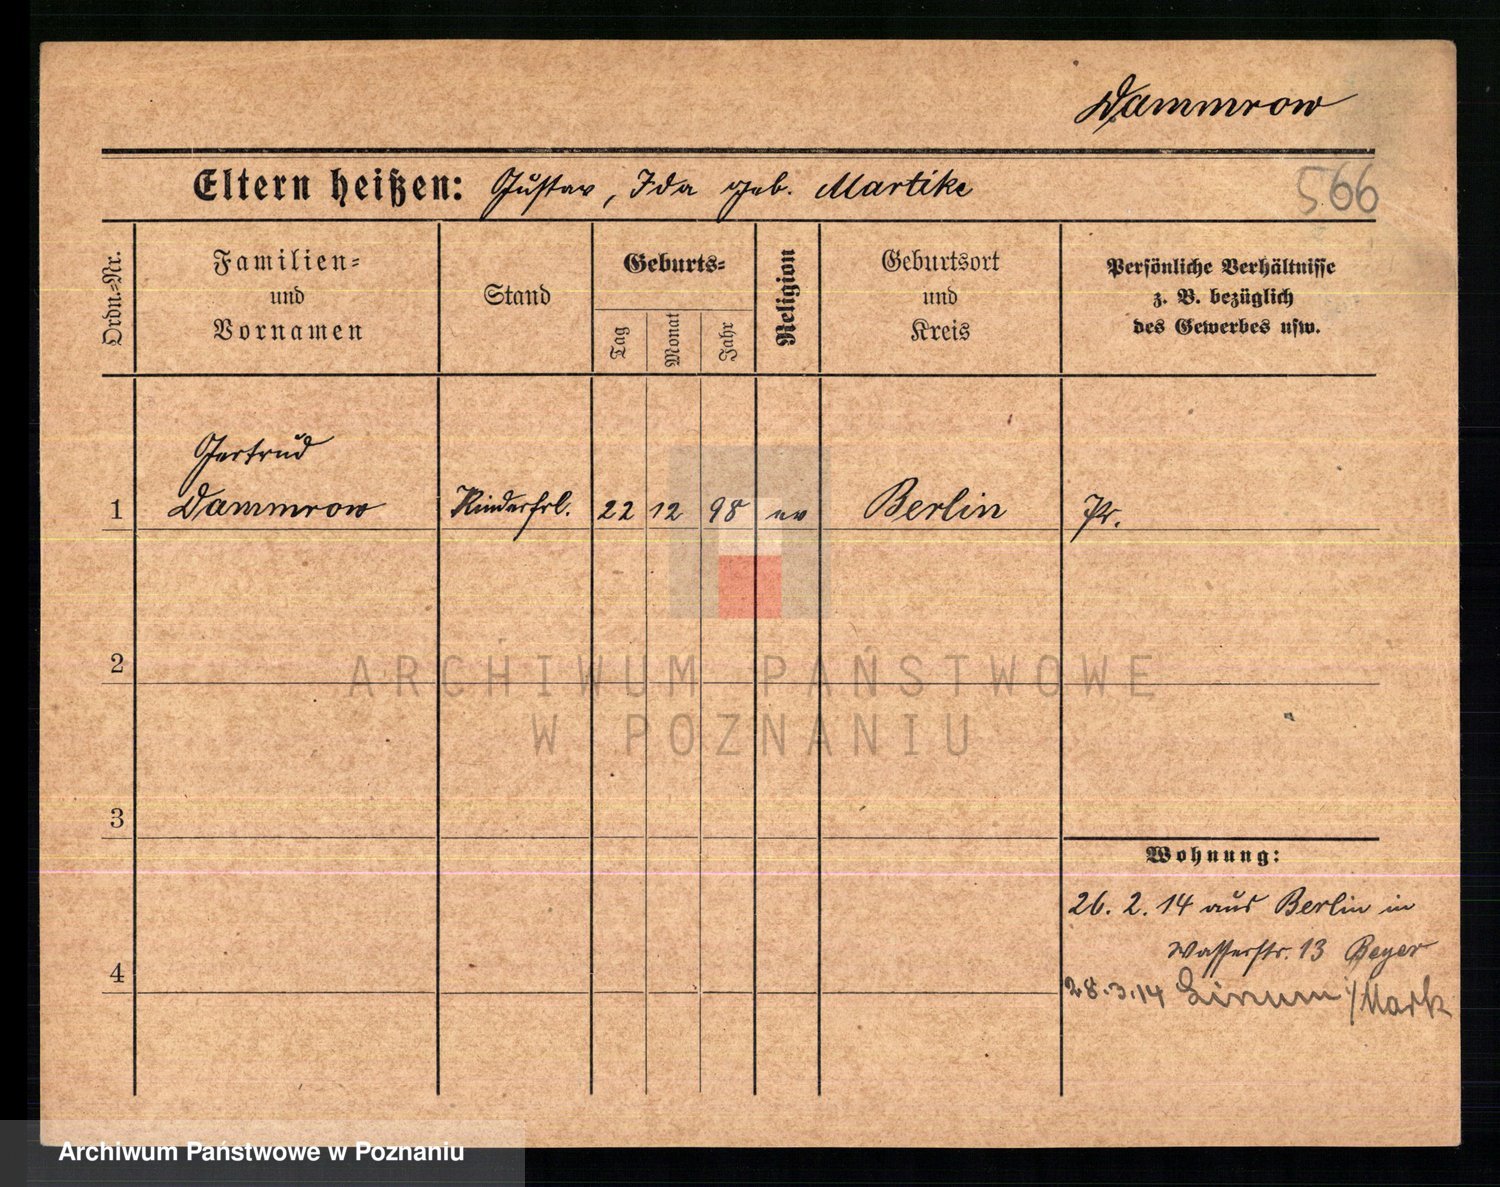 Dammrow
566
Eltern heißen: Gustav, Ida geb. Martike
Ordn.-Nr.
Familien-
und
Vornamen
Stand
Geburts-
Tag
Monat
Jahr
Religion
Geburtsort
und
Kreis
Persönliche Verhältnisse
z. B. bezüglich
des Gewerbes usw.
Gertrud
1 Dammrow Kinderfrl. 22 12 98 ev Berlin Pr.
2
ARCHIWUM PAŃSTWOWE
W POZNANIU
3
Wohnung:
26. 2. 14 aus Berlin in
Wasserstr. 13 Beyer
4
28.3.14 Linum i/Mark
Archiwum Państwowe w Poznaniu